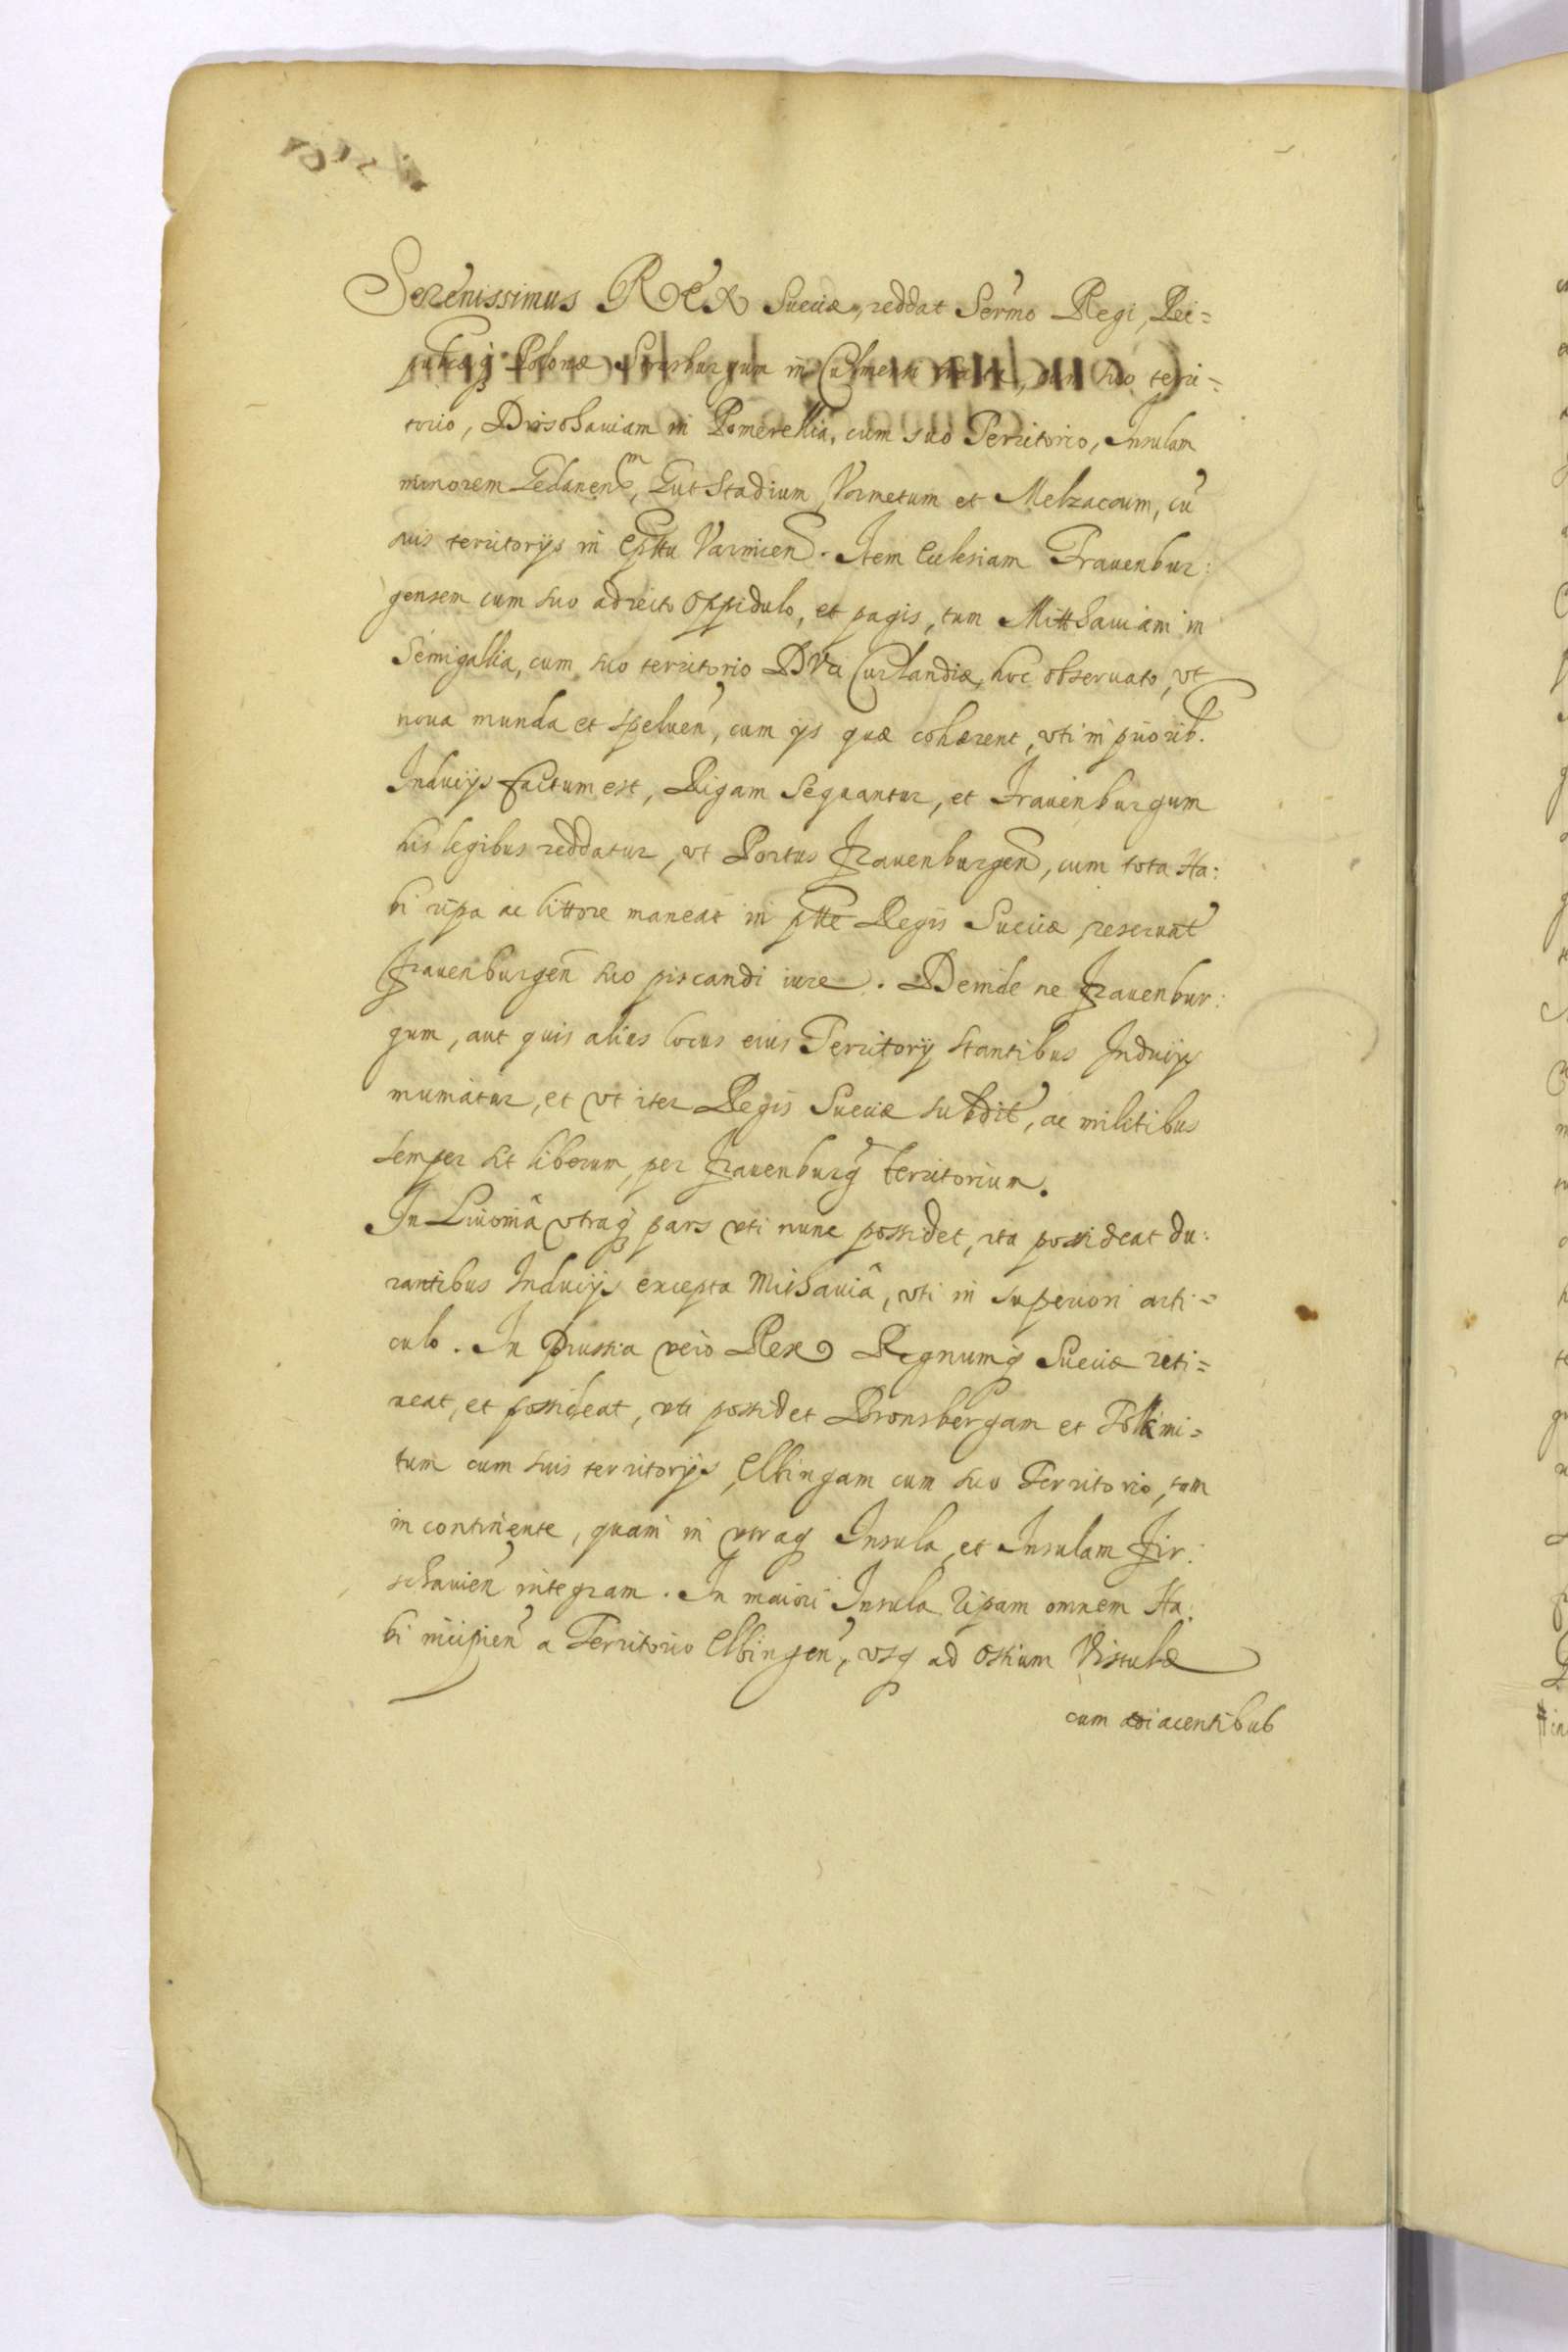 Serenissimus REX Sueciæ, reddat Sermo Regi, Rei=
publicæq Polonæ Strasburgum in Culmensi cum suo teri=
torio, Dirschaviam in Pomerellia, cum suo Territorio, Insulam
minorem Gedanen^m, Gutstadium, Vormetum et Melzacoum, cu
suis territorijs in Epttu Varmien. Item Eclesiam Frauenbur:
gensem cum suo adiecto oppidulo, et pagis, tum Mitthauiam in
Semigallia, cum suo territorio Duci Curlandiæ, hoc obseruato, vt
noua munda et speluen, cum ijs quæ cohærent, vti in priorib.
Inducijs factum est, Rigam sequantur, et Frauenburgum
his legibus reddatur, vt Portus Frauenburgen, cum tota Ha:
bi ripa ac littore maneat in ptte Regis Sueciæ, reseruat
Frauenburgen suo piscandi iure. Deinde ne Frauenbur:
gum, aut quis alius locus eius Territorij stantibus Inducijs
muniatur, et vt iter Regis Sueciæ subdit, ac militibus
semper sit liberum, per Frauenburg territorium.
In Liuonia vtraq pars vti nunc possidet, ita possideat du:
rantibus Inducijs excepta Mithauia, vti in superiori arti=
culo. In Prussia vero Rex Regnumq Sueciæ reti=
neat, et possideat, vti possidet Bronsbergam et Tolkmi=
tum cum suis territorijs, Elbingam cum suo Territorio, tam
in continente, quam in vtraq Insula, et Insulam Fir:
schauien integram. In maiori Insula Ripam omnem Ha:
bi incipien a Territorio Elbingen, vsq ad ostium Vistulæ
cum adiacentibus